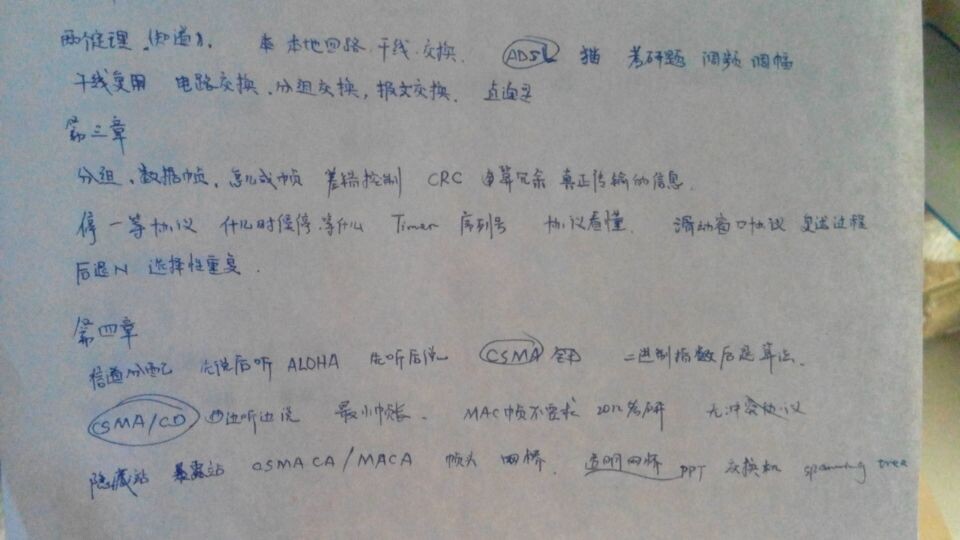 两个定理(知道)。 本地回路、干线、交换。 ADSL 猫 考研题 调频 调幅
干线复用 电路交换、分组交换,报文交换。
第三章
分组、数据帧,怎么成帧 差错控制 CRC 计算冗余 真正传输的信息。
停一等协议 什么时候停.等什么 Timer 序列号 协议看懂. 滑动窗口协议 发送过程
后退N 选择性重复.
第四章
信道分配 先说后听 ALOHA 先听后说 CSMA 二进制指数后退算法.
CSMA/CD 边听边说 最小帧长. MAC帧不要求 2012考研 无冲突协议
隐藏站 暴露站 CSMA CA/MACA 帧头 网桥. 透明网桥 PPT 交换机 spanning tree